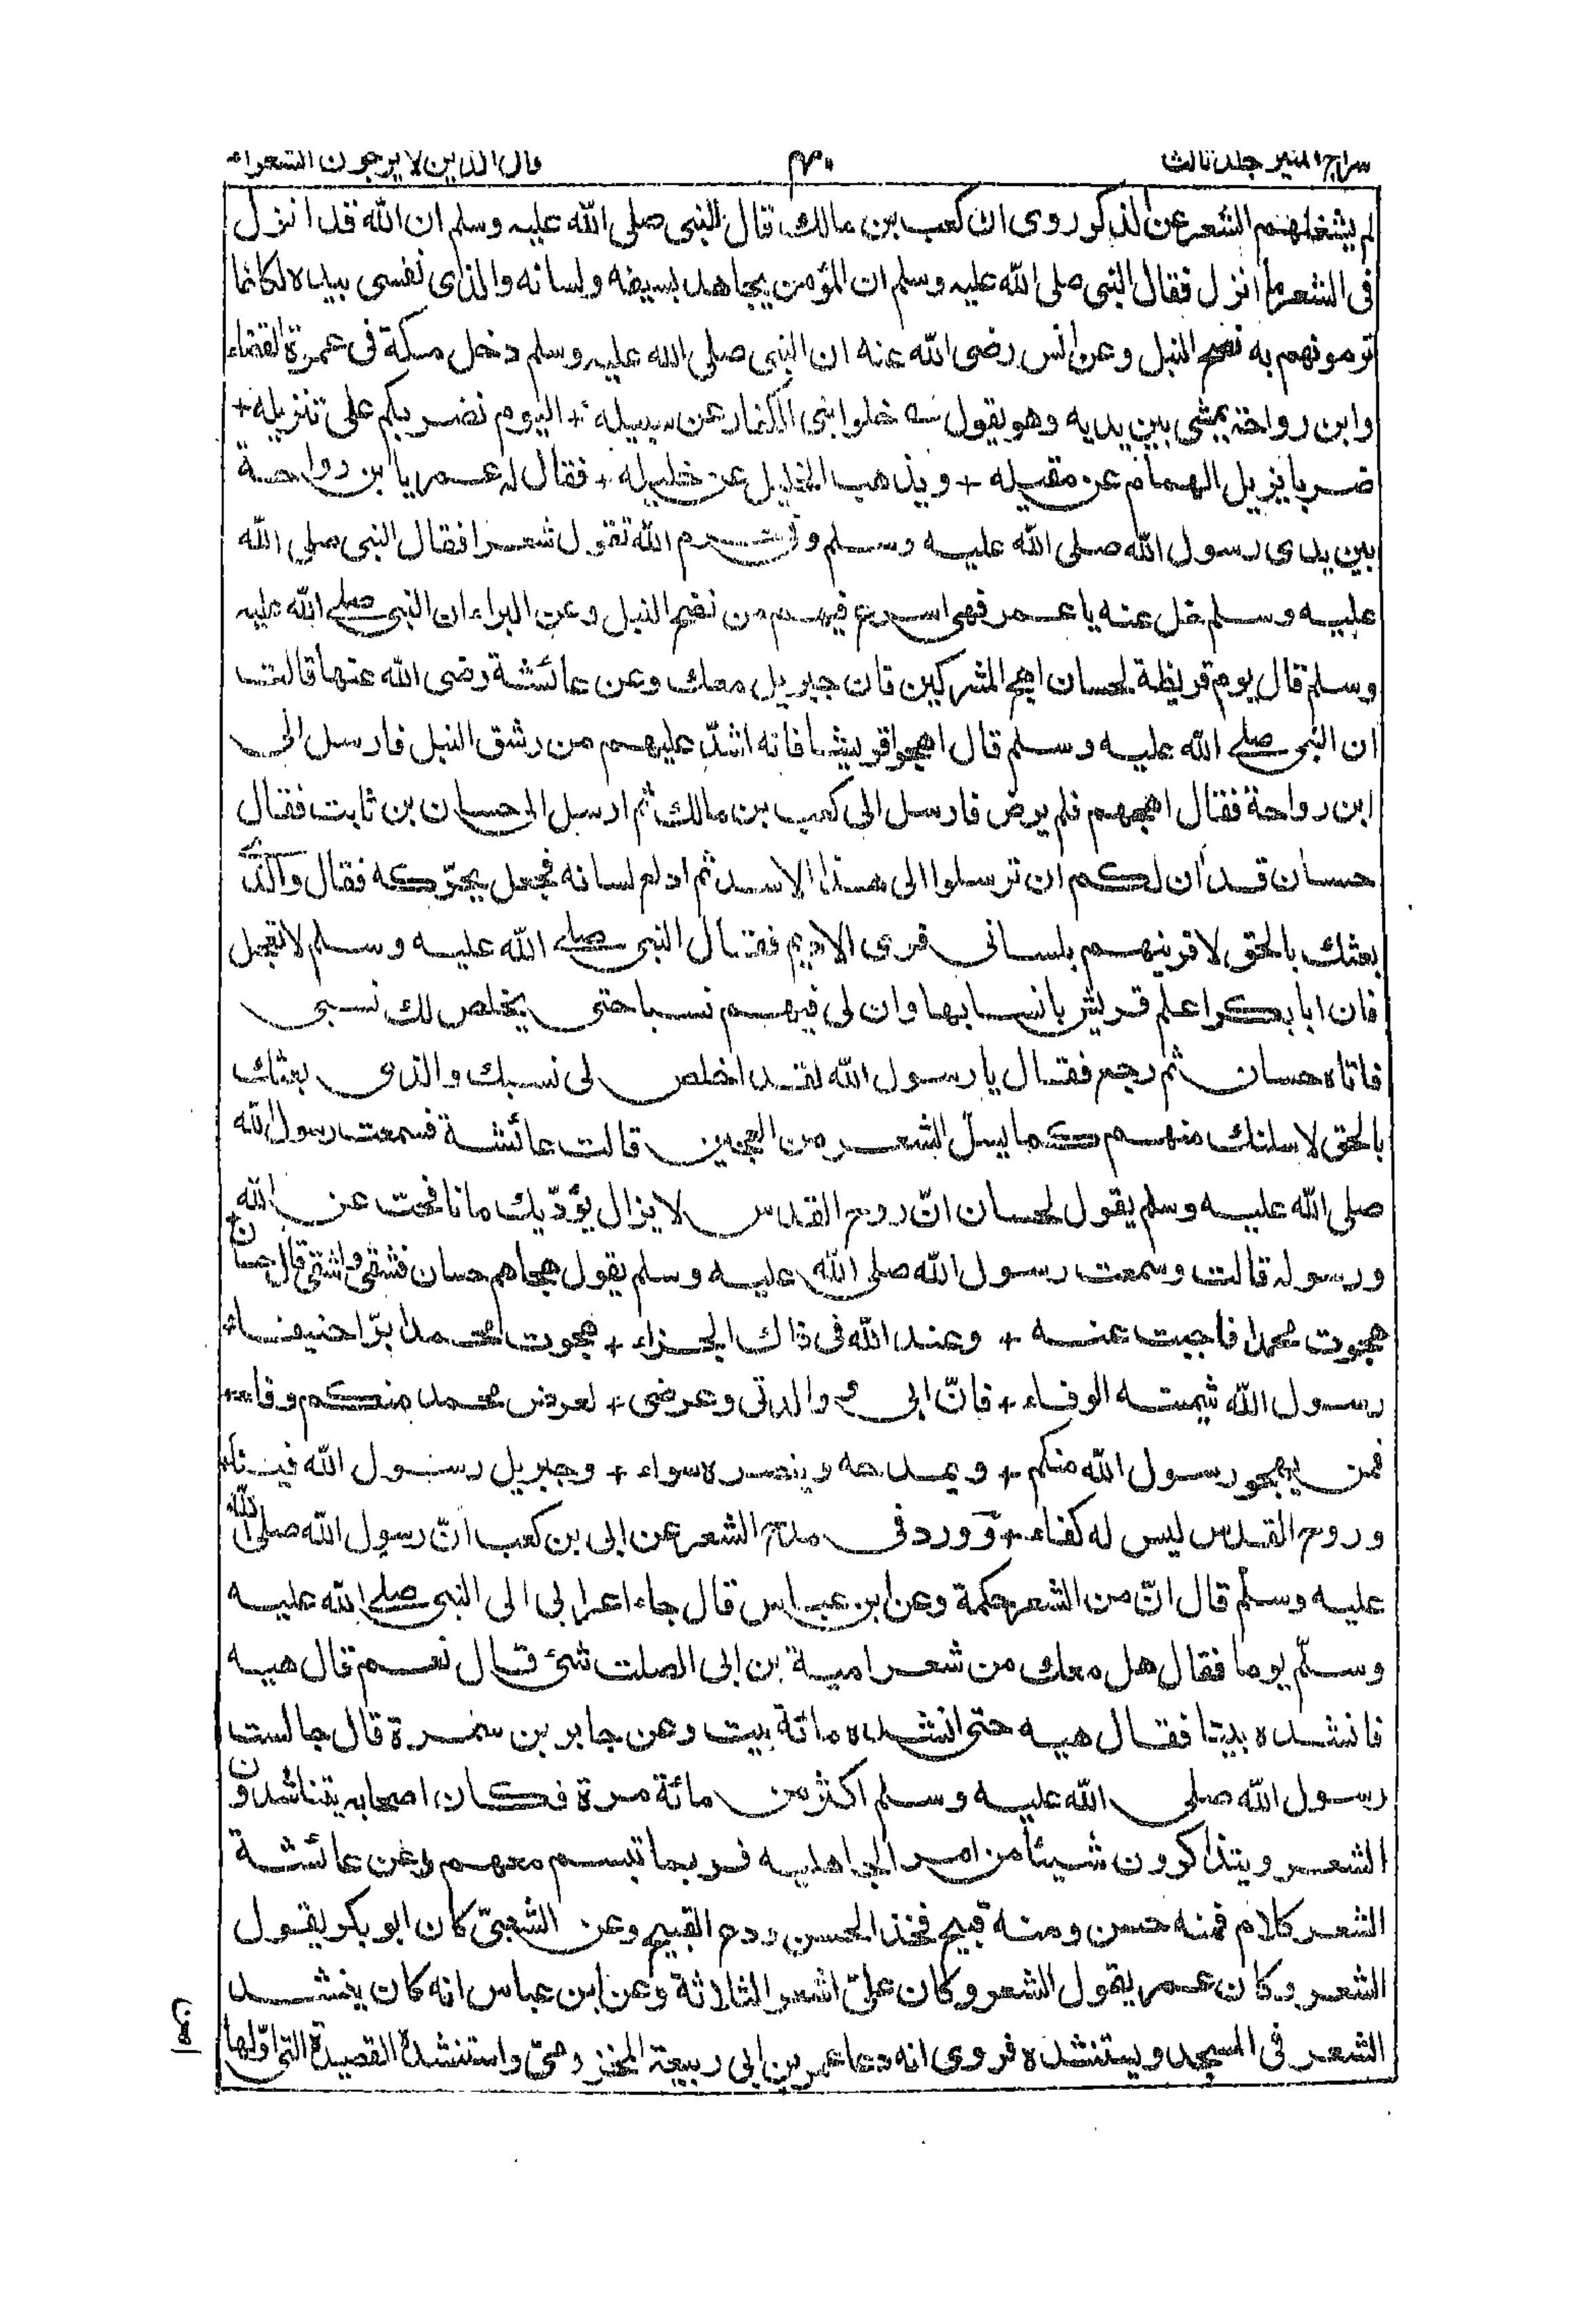 سراج المنير جلد ثالث
٤٠
قال الذين لا يرجون الشعراء
لم يشغلهم الشعر عن الذكر روى ان كعب بن مالك قال للنبى صلى الله عليه وسلم ان الله قد انزل
فى الشعر ما انزل فقال النبى صلى الله عليه وسلم ان المؤمن يجاهد بسيفه ولسانه والذى نفسى بيده لكانما
ترمونهم به نضح النبل وعن انس رضى الله عنه ان النبى صلى الله عليه وسلم دخل مكة فى عمرة القضاء
وابن رواحة يمشى بين يديه وهو يقول سه خلوا بنى الكفار عن سبيله + اليوم نضربكم على تنزيله +
ضربا يزيل الهمام عن مقيله + ويذهب الخليل عن خليله + فقال له عمر يا ابن رواحة
بين يدى رسول الله صلى الله عليه وسلم وفى حرم الله تقول شعرا فقال النبى صلى الله
عليه وسلم خل عنه يا عمر فهى اسرع فيهم من نضح النبل وعن البراء ان النبى صلى الله عليه
وسلم قال يوم قريظة لحسان اهج المشركين فان جبريل معك وعن عائشة رضى الله عنها قالت
ان النبى صلى الله عليه وسلم قال اهجوا قريشا فانه اشدّ عليهم من رشق النبل فارسل الى
ابن رواحة فقال اهجهم فلم يرض فارسل الى كعب بن مالك ثم ارسل الى حسان بن ثابت فقال
حسان قد ان لكم ان ترسلوا الى هذا الاسد ثم ادلع لسانه فجعل يحرّكه فقال والذى
بعثك بالحق لافرينهم بلسانى فرى الاديم فقال النبى صلى الله عليه وسلم لا تعجل
فان ابا بكر اعلم قريش بانسابها وان لى فيهم نسبا حتى يخلص لك نسبى
فاتاه حسان ثم رجع فقال يا رسول الله لقد اخلص لى نسبك والذى بعثك
بالحق لاسلنك منهم كما يسلّ الشعر من العجين قالت عائشة فسمعت رسول الله
صلى الله عليه وسلم يقول لحسان انّ روح القدس لا يزال يؤدّيك ما نافحت عن الله
ورسوله قالت وسمعت رسول الله صلى الله عليه وسلم يقول هجاهم حسان فشفى واشتفى قال حسان
هجوت محمدا فاجبت عنه + وعند الله فى ذاك الجزاء + هجوت محمدا برّا حنيفا +
رسول الله شيمته الوفاء + فانّ ابى و والدتى وعرضى + لعرض محمد منكم وقاء +
فمن يهجو رسول الله منكم + ويمدحه وينصره سواء + وجبريل رسول الله فينا +
وروح القدس ليس له كفاء + وورد فى مدح الشعر عن ابى بن كعب انّ رسول الله صلى الله
عليه وسلّم قال انّ من الشعر حكمة وعن ابن عباس قال جاء اعرابى الى النبى صلى الله عليه
وسلّم يوما فقال هل معك من شعر امية بن ابى الصلت شئ قال نعم قال هيه
فانشده بيتا فقال هيه حتى انشده مائة بيت وعن جابر بن سمرة قال جالست
رسول الله صلى الله عليه وسلم اكثر من مائة مرة فكان اصحابه يتناشدون
الشعر ويتذاكرون شيئا من امر الجاهليه فربما تبسم معهم وعن عائشة
الشعر كلام فمنه حسن ومنه قبيح فخذ الحسن ودع القبيح وعن الشعبىّ كان ابو بكر يقول
الشعر وكان عمر يقول الشعر وكان علىّ اشعر الثلاثة وعن ابن عباس انه كان ينشد
الشعر فى المسجد ويستنشده فروى انه دعا عمر بن ابى ربيعة المخزومىّ واستنشده القصيدة التى اوّلها